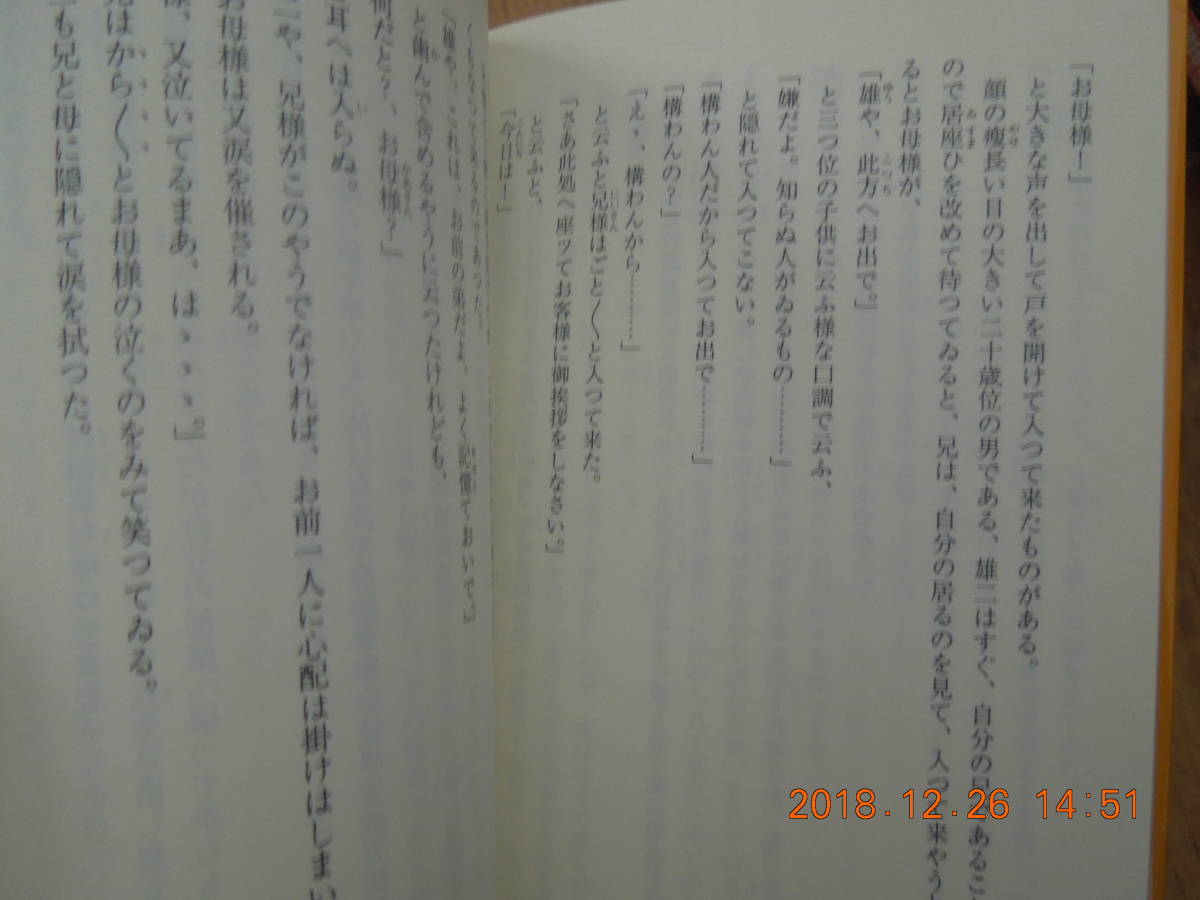 「お母様！」
と大きな声を出して戸を開けて入つて来たものがある。
顔の瘦長い目の大きい二十歳位の男である、雄二はすぐ、自分の兄であること
ので居座ひを改めて待つてゐると、兄は、自分の居るのを見て、入つて来やうと
るとお母様が、
「雄や、此方へお出で。」
と三つ位の子供に云ふ様な口調で云ふ、
「嫌だよ。知らぬ人がゐるもの…………」
と隠れて入つてこない。
「構わん人だから入つてお出で…………」
「構わんの？」
「えゝ、構わんから…………」
と云ふと兄様はごと〱と入つて来た。
「さあ此処へ座ツてお客様に御挨拶をしなさい。」
と云ふと、
「今日は！」
くもなつて来るのであつた、
「雄や、これは、お前の弟だよ、よく記憶ておいで。」
と歯んで含めるやうに云つたけれども、
何だと？、お母様？」
耳へは入らぬ。
二や、兄様がこのやうでなければ、お前一人に心配は掛けはしまい
お母様は又涙を催される。
様、又泣いてるまあ、はゝゝゝ。」
兄はから〱とお母様の泣くのをみて笑つてゐる。
も兄と母に隠れて涙を拭つた。
2018.12.26 14:51